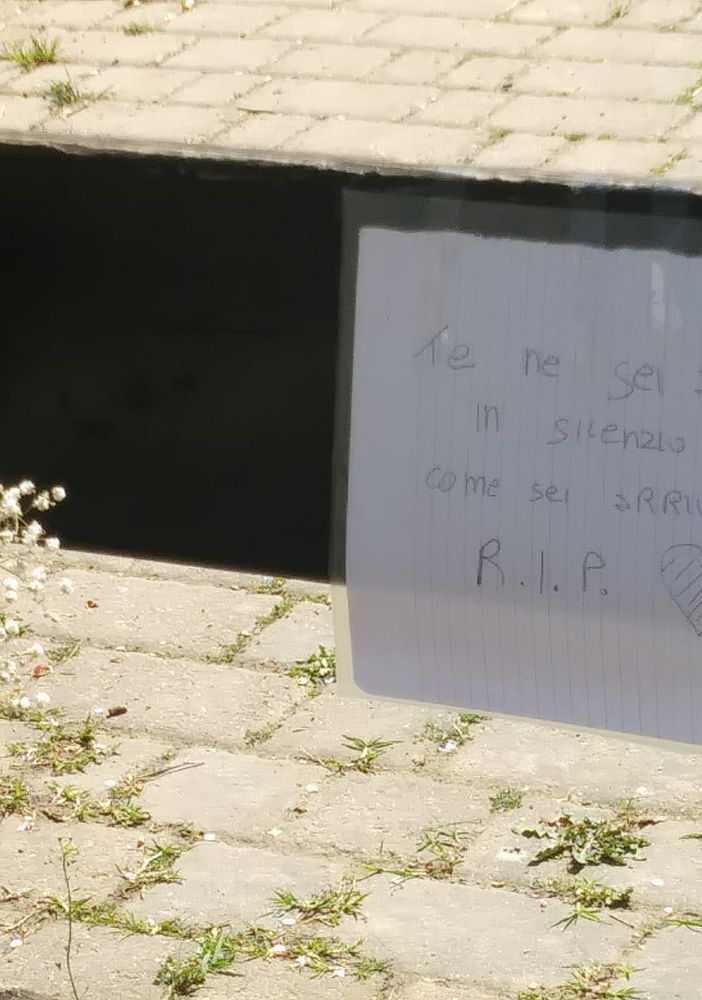 Te ne sei
in silenzio
come sei
R.I.P.